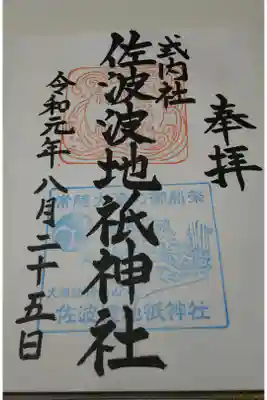 奉拝
式内社
佐波波地祇神社
令和元年八月二十五日
佐波波地祇神社